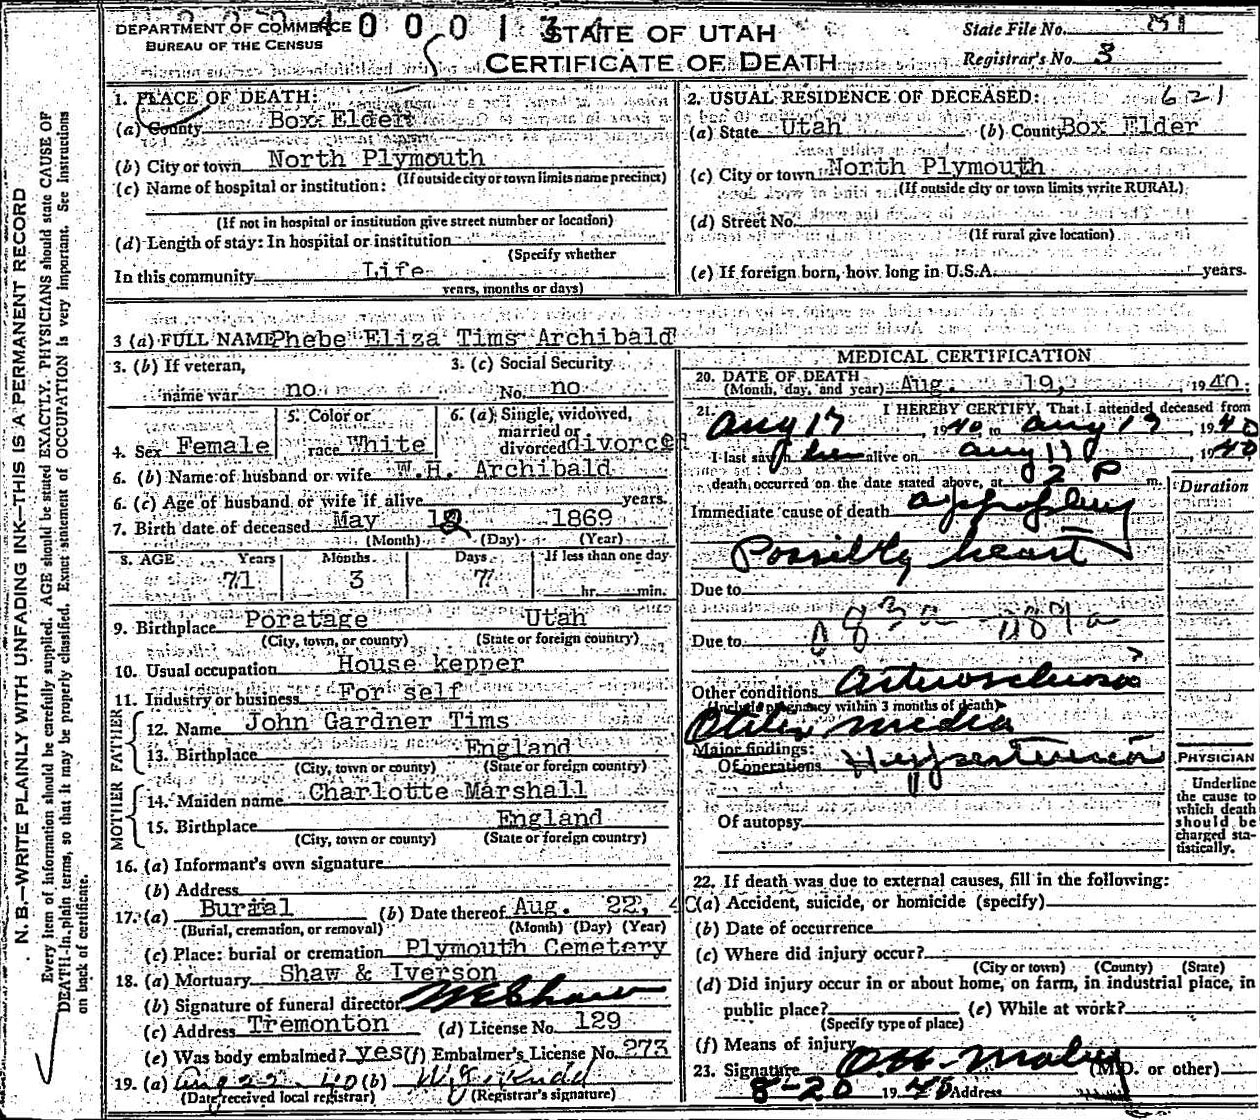 DEPARTMENT OF COMMERCE
BUREAU OF THE CENSUS
STATE OF UTAH
CERTIFICATE OF DEATH
State File No.
Registrar's No. 3
N. B.—WRITE PLAINLY WITH UNFADING INK—THIS IS A PERMANENT RECORD
Every item of information should be carefully supplied. AGE should be stated EXACTLY. PHYSICIANS should state CAUSE OF
DEATH in plain terms, so that it may be properly classified. Exact statement of OCCUPATION is very important. See Instructions
on back of certificate.
1. PLACE OF DEATH:
(a) County Box Elder
(b) City or town North Plymouth
(If outside city or town limits name precinct)
(c) Name of hospital or institution:
(If not in hospital or institution give street number or location)
(d) Length of stay: In hospital or institution
(Specify whether
In this community Life
years, months or days)
2. USUAL RESIDENCE OF DECEASED: 621
(a) State Utah (b) County Box Elder
(c) City or town North Plymouth
(If outside city or town limits write RURAL)
(d) Street No.
(If rural give location)
(e) If foreign born, how long in U.S.A. years.
3 (a) FULL NAME Phebe Eliza Tims Archibald
3. (b) If veteran,
name war no
3. (c) Social Security
No. no
4. Sex Female
5. Color or
race White
6. (a) Single, widowed,
married or
divorced divorced
6. (b) Name of husband or wife W.H. Archibald
6. (c) Age of husband or wife if alive years.
7. Birth date of deceased May 12 1869
(Month) (Day) (Year)
8. AGE Years Months Days If less than one day
71 3 7 hr. min.
9. Birthplace Poratage Utah
(City, town, or county) (State or foreign country)
10. Usual occupation House kepner
11. Industry or business For self
FATHER
12. Name John Gardner Tims
13. Birthplace England
(City, town or county) (State or foreign country)
MOTHER
14. Maiden name Charlotte Marshall
15. Birthplace England
(City, town or county) (State or foreign country)
16. (a) Informant's own signature
(b) Address
17. (a) Burial (b) Date thereof Aug. 22, 40
(Burial, cremation, or removal) (Month) (Day) (Year)
(c) Place: burial or cremation Plymouth Cemetery
18. (a) Mortuary Shaw & Iverson
(b) Signature of funeral director W E Shaw
(c) Address Tremonton (d) License No. 129
(e) Was body embalmed? yes (f) Embalmer's License No. 273
19. (a) Aug 22 - 40 (b) W. J. Rudd
(Date received local registrar) (Registrar's signature)
MEDICAL CERTIFICATION
20. DATE OF DEATH
(Month, day, and year) Aug. 19, 1940.
21. I HEREBY CERTIFY, That I attended deceased from
Aug 17, 1940 to Aug 19, 1940
I last saw her alive on Aug 19, 1940
death occurred on the date stated above, at 2 P m.
Duration
Immediate cause of death apoplexy
Possibly heart
Due to
Due to 083a 087a
Other conditions Arteriosclerosis
(Include pregnancy within 3 months of death)
Otitis media
Major findings:
Of operations Hypertension
Of autopsy
PHYSICIAN
Underline
the cause to
which death
should be
charged sta-
tistically.
22. If death was due to external causes, fill in the following:
(a) Accident, suicide, or homicide (specify)
(b) Date of occurrence
(c) Where did injury occur?
(City or town) (County) (State)
(d) Did injury occur in or about home, on farm, in industrial place, in
public place? (e) While at work?
(Specify type of place)
(f) Means of injury
23. Signature (M.D. or other)
8-20 1940 Address